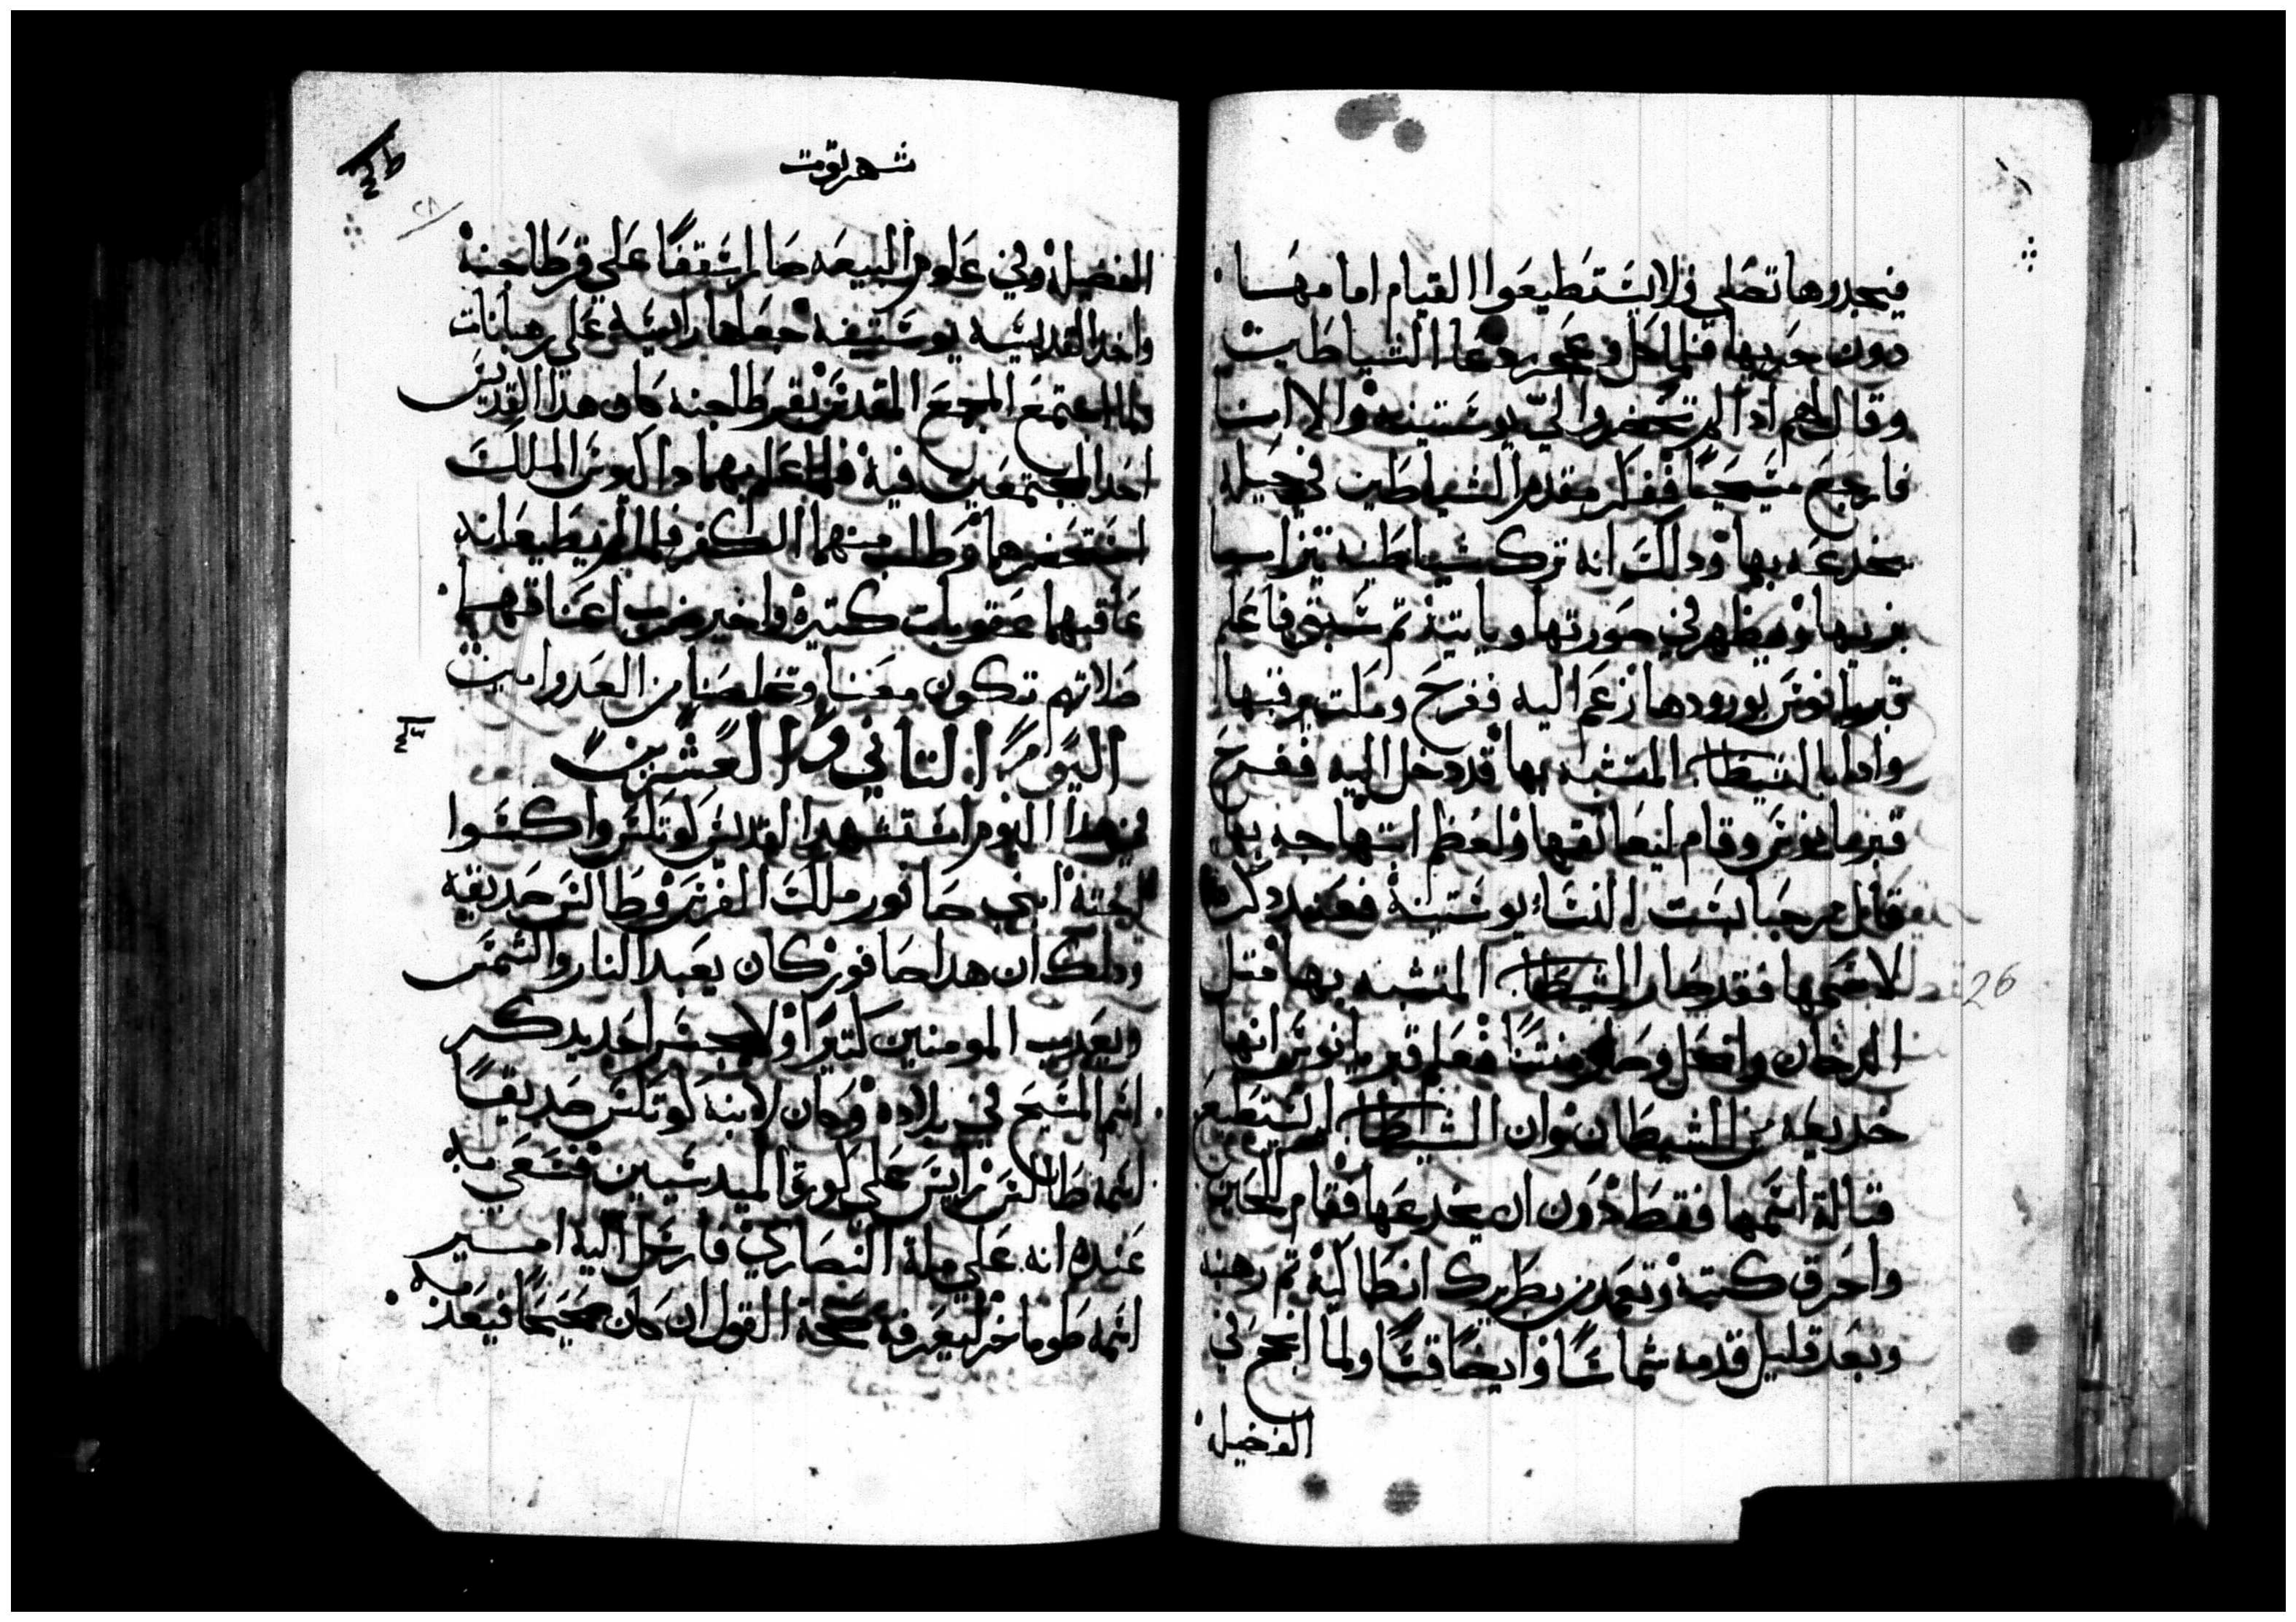 فيجدوها تصلي فلا يستطيعوا القيام امامها
دون حريها فلما كل وعجر دعا الشياطين
وقال لهم اذا لم تحضروا لي يوستينه والا انا
فارجع مسيحيا ففكر مقدم الشياطين في حيله
يخدعه بها وذالك انه ترك شياطينه تتزايا
بزيها وتظهر في صورتها وياتيه ثم سبق فاعلم
قبريانوس بورودها زعم اليه ففرح وملت يرقبها
واذا بالشيطان المتشبه بها قد دخل اليه ففرح
قبريانوس وقام ليعانقها ولعظم ابتهاجه بها
قايل مرحبا بست النسا يوستينه فعند ذكره
لاسمها فقد صار الشيطان المتشبه بها متل
الدخان وانحل وصار منتنا فعلم قبريانوس انها
خديعه من الشيطان وان الشيطان لم يستطع
قتالة اسمها فقط دون ان يخدعها فقام للحين
واحرق كتبه وتعمد من بطريرك انطاكيه ثم رهبنه
وبعد قليل قدمه شماسا وايضا قسا ولما انجح في
الفضيل
شهر توت
الفضيله وفي علوم البيعه صار اسقفا على قرطاجنه
واخد القديسه يوستينه جعلها رايسه على رهبانات
ولما اجتمع المجمع المقدس بقرطاجنه كان هدا القديس
احد المجتمعين فيه فلما علم بهما داكيوس الملك
استحضرهما وطلب منهما الكفر فلما لم يطيعانه
عاقبهما عقوبات كتيره واخير ضرب اعناقهما
صلاتهم تكون معنا وتخلصنا من العدو امين
اليوم التاني والعشرين
في هدا اليوم استشهد القديس كوتلس واكسوا
اخته ابني صافور ملك الفرس وطاطس صديقه
ودلك ان هدا صافور كان يعبد النار والشمس
ويعدب المومنين كتيرا ولا يجسر احد يدكر
اسم المسيح في بلاده وكان لابنه كوتلس صديقا
اسمه طاطس رايس على كورة الميدسيين فسعي به
عنده انه على ملة النصاري فارسل اليه امير
اسمه طوماخر ليعرفه صحة القول ان كان صحيحا فيعدبه
26